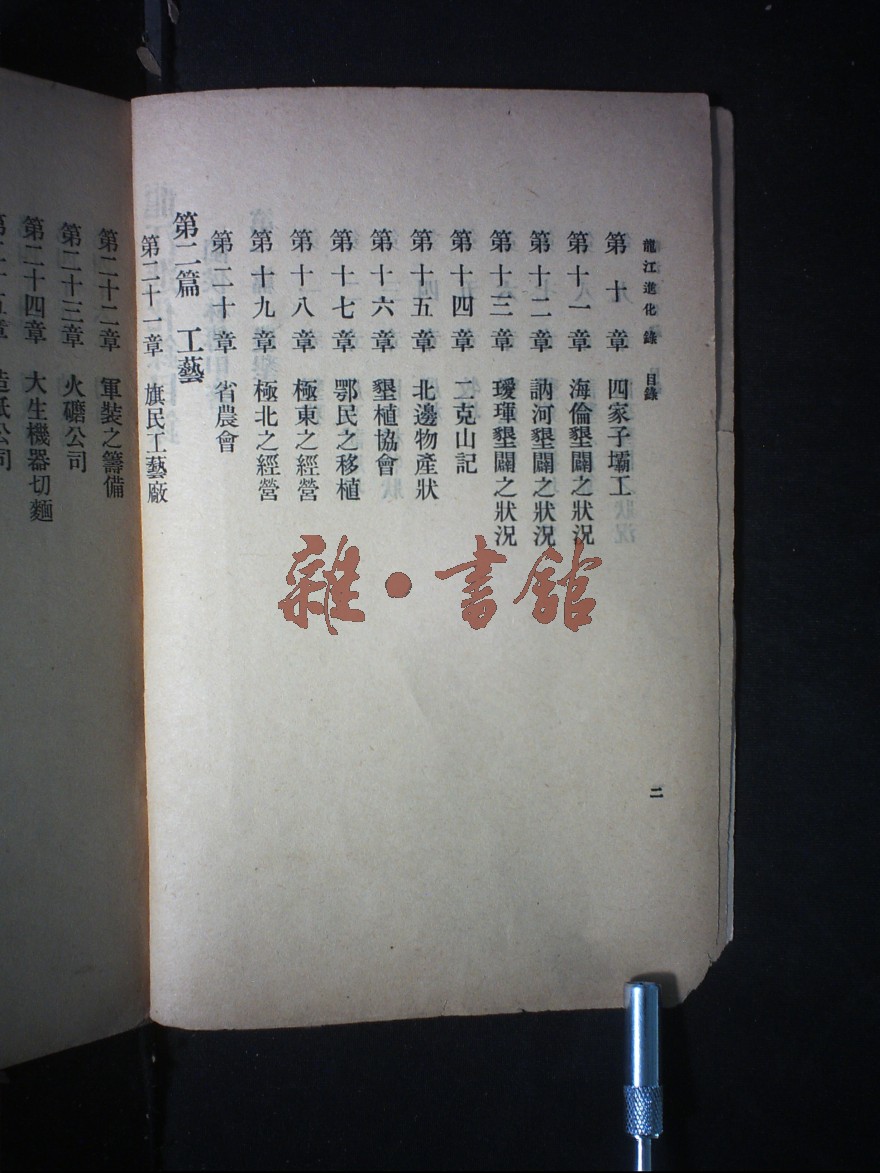 龍江進化錄 目錄
第十章 四家子壩工
第十一章 海倫墾闢之狀況
第十二章 訥河墾闢之狀況
第十三章 璦琿墾闢之狀況
第十四章 二克山記
第十五章 北邊物產狀
第十六章 墾植協會
第十七章 鄂民之移植
第十八章 極東之經營
第十九章 極北之經營
第二十章 省農會
第二篇 工藝
第二十一章 旗民工藝廠
二
第二十二章 軍裝之籌備
第二十三章 火礳公司
第二十四章 大生機器切麵
第二十五章 造紙公司
雜·書館